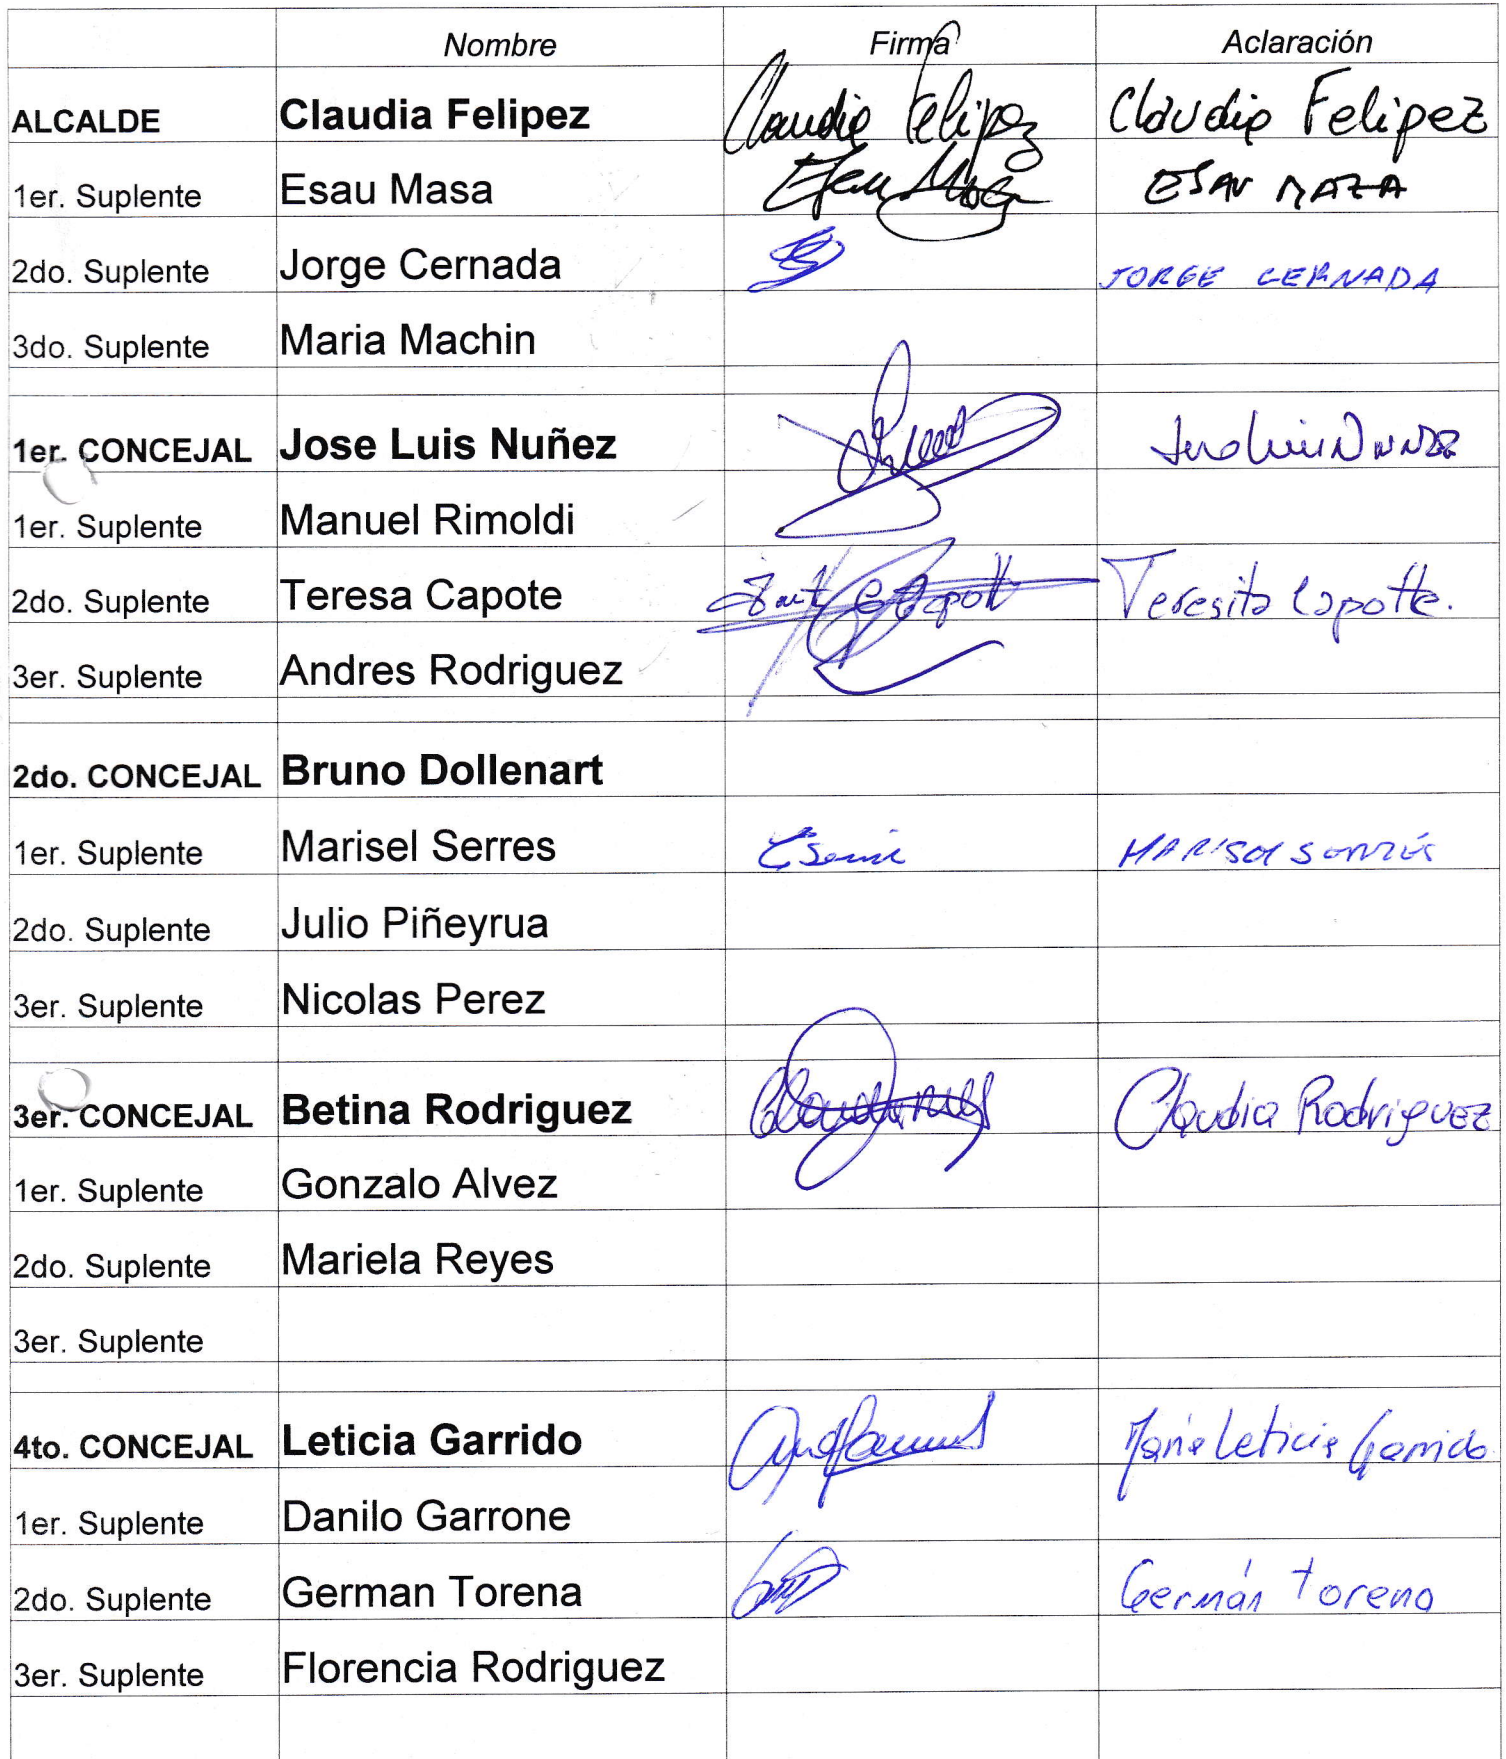 Nombre Firma Aclaración
ALCALDE Claudia Felipez Claudia Felipez Claudia Felipez
1er. Suplente Esau Masa Esau Maza ESAU MAZA
2do. Suplente Jorge Cernada JORGE CERNADA
3do. Suplente Maria Machin
1er. CONCEJAL Jose Luis Nuñez
1er. Suplente Manuel Rimoldi
2do. Suplente Teresa Capote Teresita Capotte.
3er. Suplente Andres Rodriguez
2do. CONCEJAL Bruno Dollenart
1er. Suplente Marisel Serres
2do. Suplente Julio Piñeyrua
3er. Suplente Nicolas Perez
3er. CONCEJAL Betina Rodriguez Claudia Rodriguez
1er. Suplente Gonzalo Alvez
2do. Suplente Mariela Reyes
3er. Suplente
4to. CONCEJAL Leticia Garrido María Leticia Garrido
1er. Suplente Danilo Garrone
2do. Suplente German Torena Germán Torena
3er. Suplente Florencia Rodriguez